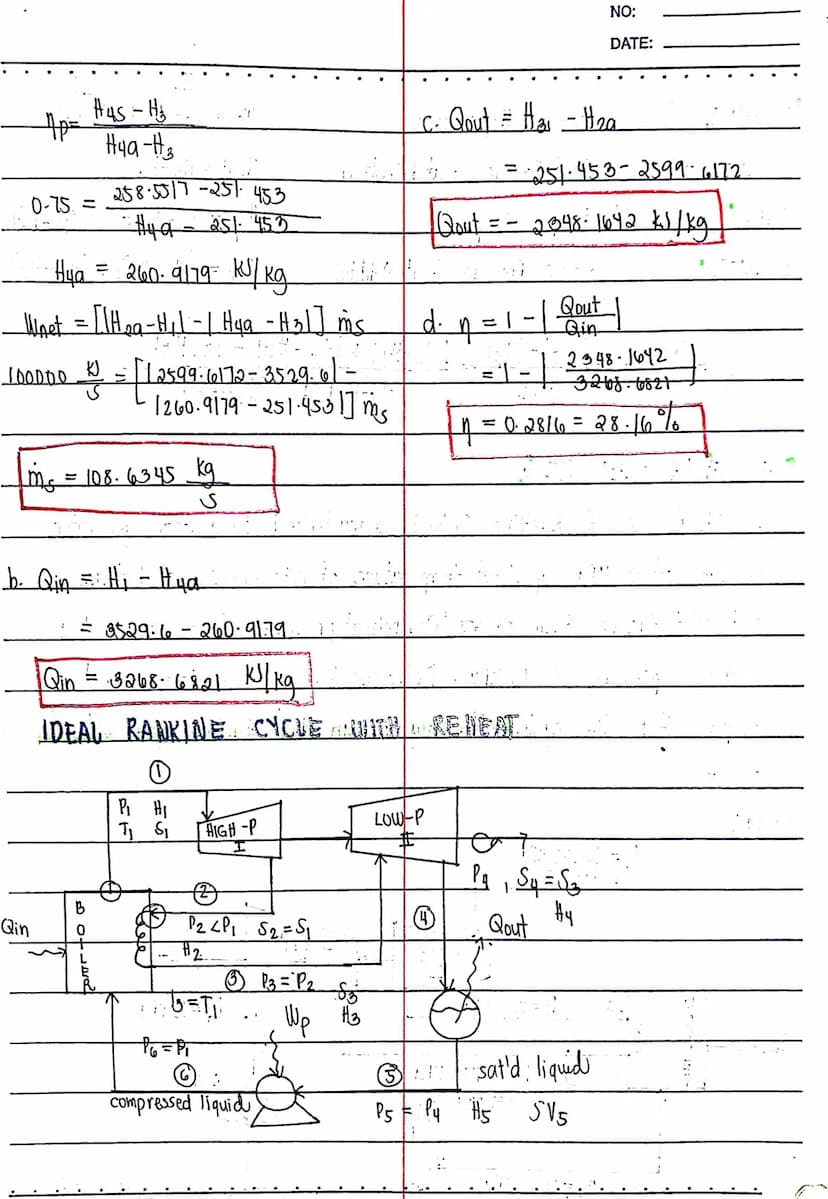 NO:
DATE:
ηp= H4s - H3 / H4a - H3
0.75 = 258.5517 - 251.453 / H4a - 251.453
H4a = 260.9179 kJ/kg
Wnet = [|H2a-H1| - |H4a - H3|] ṁs
100000 kJ/s = [|2599.6172 - 3529.6| -
|260.9179 - 251.453|] ṁs
ṁs = 108.6345 kg/s
b. Qin = H1 - H4a
= 3529.6 - 260.9179
Qin = 3268.6821 kJ/kg
c. Qout = H3 - H2a
= 251.453 - 2599.6172
Qout = - 2348.1642 kJ/kg
d. η = 1 - | Qout / Qin |
= 1 - | 2348.1642 / 3268.6821 |
η = 0.2816 = 28.16%
IDEAL RANKINE CYCLE WITH REHEAT
①
P1 H1
T1 S1
HIGH-P
I
LOW-P
II
P4, S4 = S3
H4
②
P2 < P1 S2 = S1
H2
BOILER
Qin
④
Qout
③ P3 = P2 S3
T3 = T1 H3
Wp
P6 = P1
⑥
compressed liquid
⑤
sat'd. liquid
P5 = P4 H5 SV5